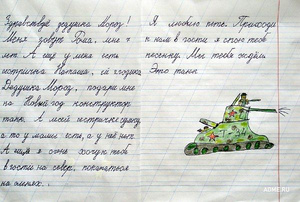 Здравствуй дедушка Мороз!
Меня зовут Рома, мне 7
лет. А ещё у меня есть
сестричка Наташа, ей годика
Дедушка Мороз, подари мне
на Новый год конструктор
танк. А моей сестричке сумку,
а то у мамы есть, а у неё нет.
А ещё я очень хочу к тебе
в гости на север, покататься
на оленях.
Я люблю петь. Приходи
к нам в гости я спою тебе
песенку. Мы тебя ждём.
Это танк.
ADME.RU